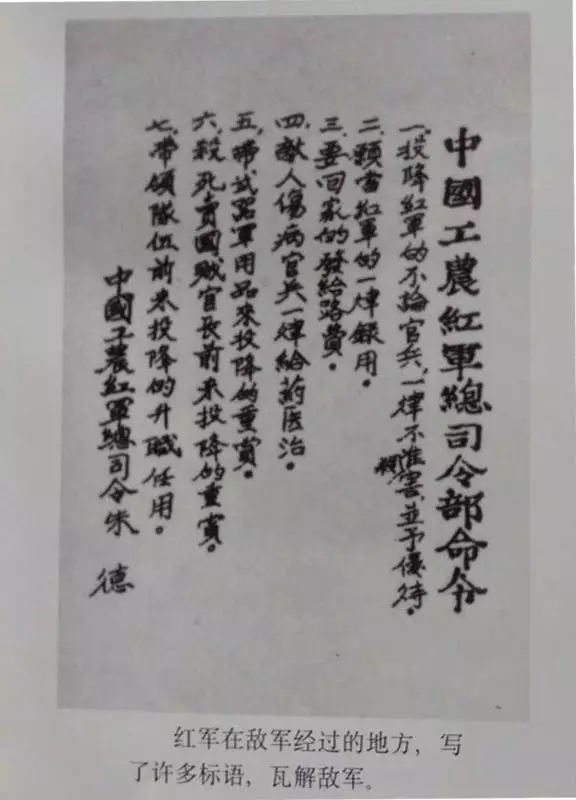 中國工農紅軍總司令部命令
一、投降紅軍的不論官兵,一律不准殺害,並予優待。
二、願当紅軍的一律錄用。
三、要回家的發給路費。
四、敵人傷病官兵一律給药医治。
五、帶武器軍用品來投降的重賞。
六、殺死賣國賊官長前来投降的重賞。
七、帶領隊伍前来投降的升職任用。
中國工農紅軍總司令朱 德
红军在敌军经过的地方,写
了许多标语,瓦解敌军。